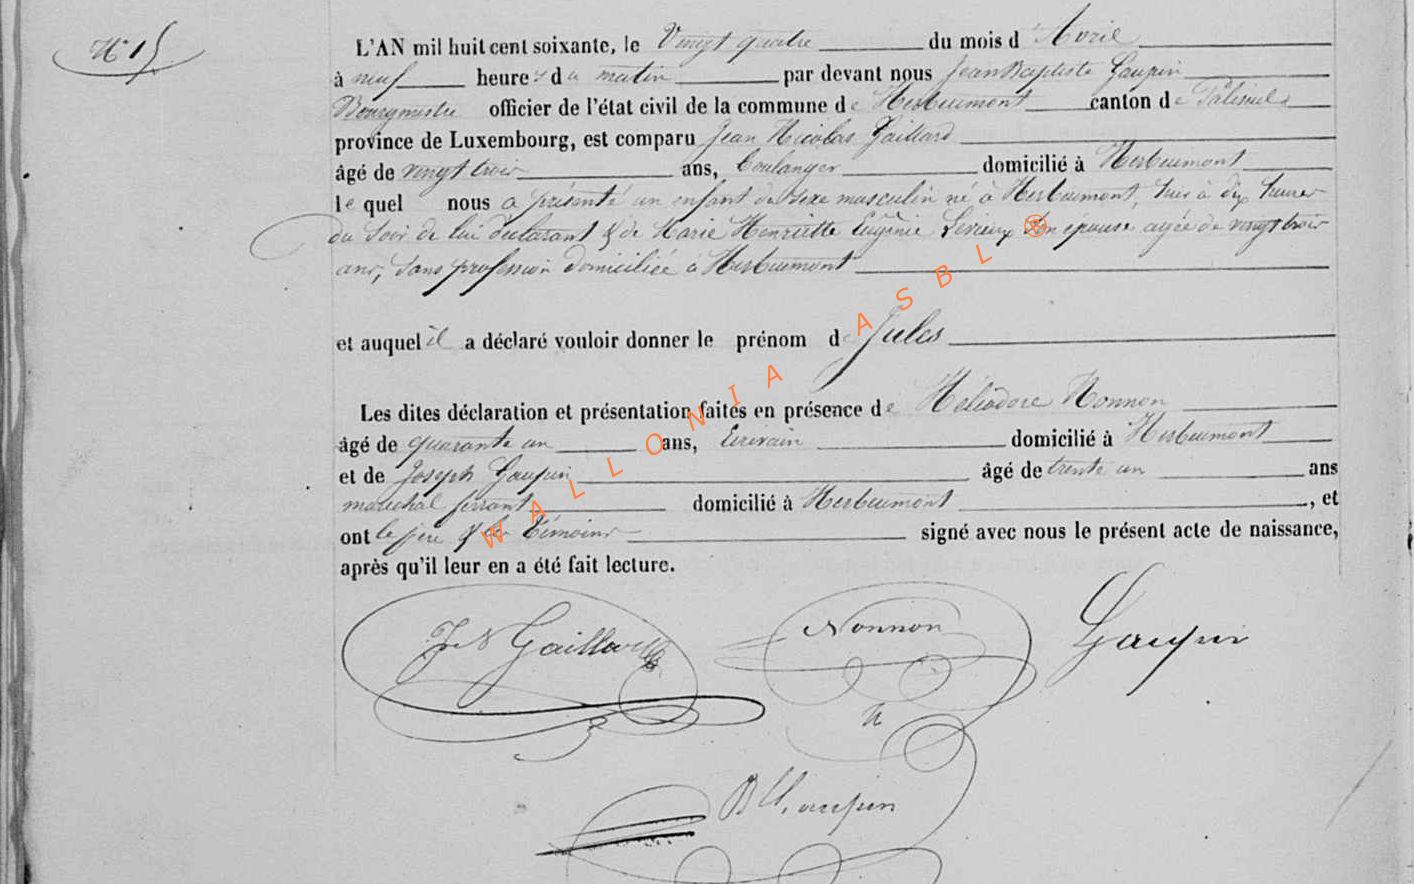 N° 15
L'AN mil huit cent soixante, le Vingt quatre du mois d'Avril
à neuf heures du matin par devant nous Jean Baptiste Gaupin
Bourgmestre officier de l'état civil de la commune de Herbeumont canton de Paliseul
province de Luxembourg, est comparu Jean Nicolas Gaillard
âgé de vingt trois ans, boulanger domicilié à Herbeumont
le quel nous a présenté un enfant de sexe masculin né à Herbeumont, hier à dix heures
du soir de lui déclarant & de Marie Henriette Eugénie son épouse agée de vingt trois
ans, sans profession domiciliée à Herbeumont
et auquel il a déclaré vouloir donner le prénom de Jules
Les dites déclaration et présentation faites en présence de Héliodore Nonnon
âgé de quarante un ans, Ecrivain domicilié à Herbeumont
et de Joseph Gaupin âgé de trente un ans
maréchal ferrant domicilié à Herbeumont, et
ont le père & les témoins signé avec nous le présent acte de naissance,
après qu'il leur en a été fait lecture.
WALLONIA ASBL ®
J N Gaillard Nonnon Gaupin
h
B Gaupin